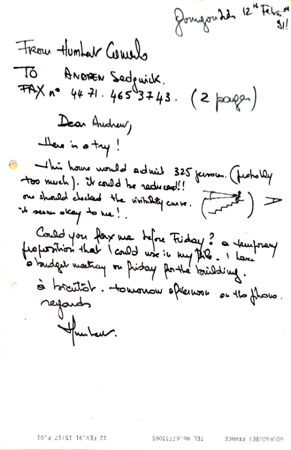 12th Feb
91!
From Humbert Camerlo
TO ANDREW Sedgwick.
FAX n° 44 71. 465 3743. (2 pages)
Dear Andrew,
Here is a try!
This house would admit 325 persons. (probably
too much). it could be reduced!!
one should checked the visibility curve.
it seem okay to me!.
Could you fax me before Friday? a temporary
proposition that I could use in my file. I have
a budget meeting on friday for the building.
à bientôt. tomorrow afternoon on the phone.
regards
Humbert.
12 FEV. 91 15:17 P.01 TEL No.67733065 GOURGOUDES FRANCE